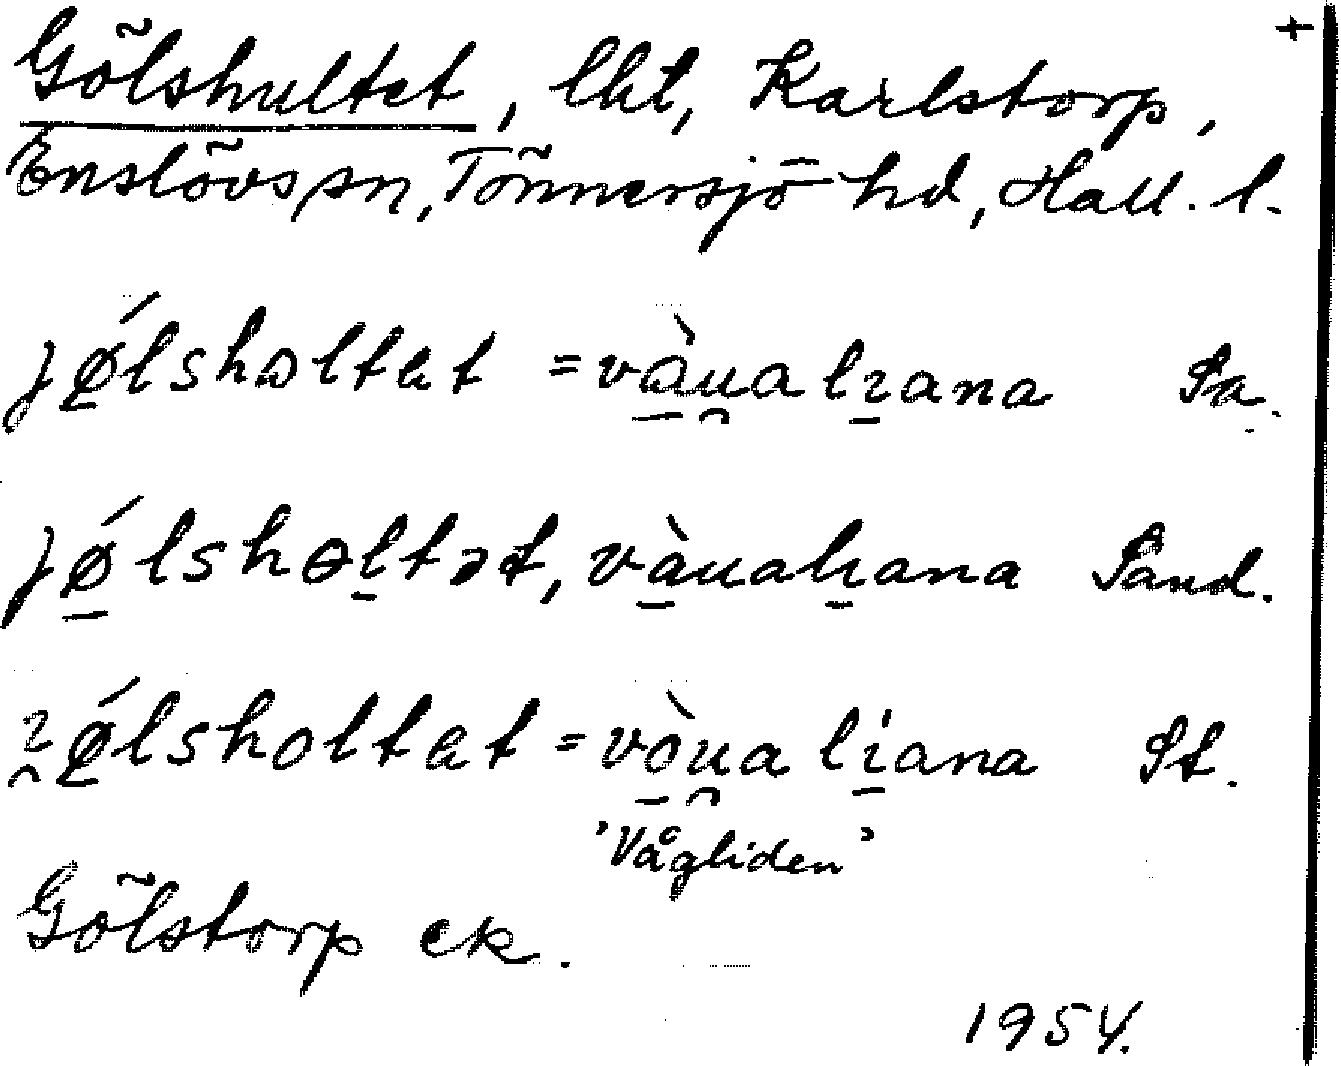 Gölshultet, lht, Karlstorp, +
Enslövs sn, Tönnersjö hd, Hall. l.
jǿ̱lshɷltat = và̱u̯ali̱ana Pa.
jǿ̱lshɵḻtət, và̱uali̱ana Pand.
i̯ǿ̱lsholtat = vò̱u̯ali̱ana St.
'Vågliden'
Gölstorp ek.
1954.